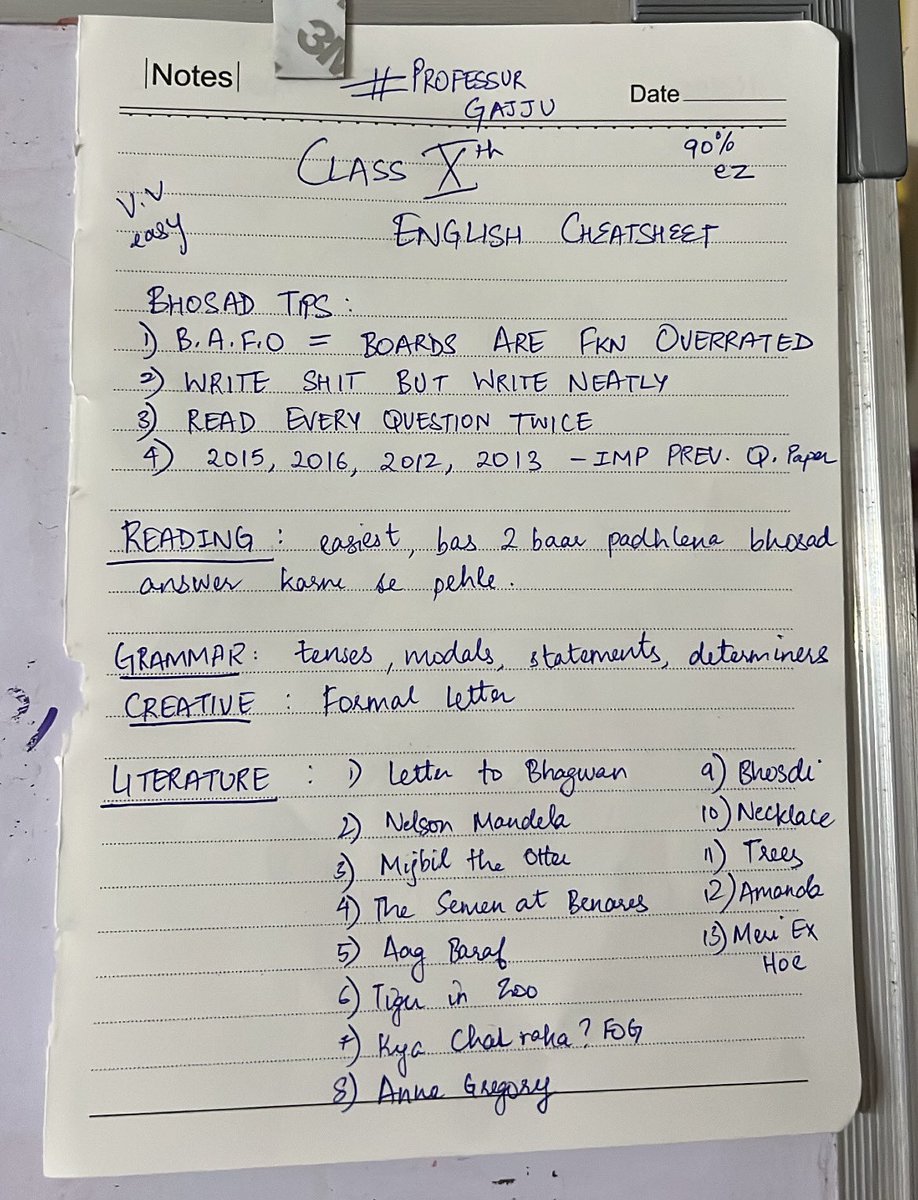 3M
|Notes|
# PROFESSUR
GAJJU
Date
CLASS Xth
90%
ez
V.V
easy
ENGLISH CHEATSHEET
BHOSAD TIPS :
1) B.A.F.O = BOARDS ARE FKN OVERRATED
2) WRITE SHIT BUT WRITE NEATLY
3) READ EVERY QUESTION TWICE
4) 2015, 2016, 2012, 2013 - IMP PREV. Q. Paper
READING : easiest, bas 2 baar padhlena bhosad
answer karne se pehle.
GRAMMAR : tenses, modals, statements, determiners
CREATIVE : Formal letter
LITERATURE : 1) Letter to Bhagwan 9) Bhosdi
2) Nelson Mandela 10) Necklace
3) Mijbil the Otter 11) Trees
4) The Semen at Benares 12) Amanda
5) Aag Baraf 13) Meri Ex
Hoe
6) Tiger in Zoo
7) Kya Chal raha? FOG
8) Anne Gregory